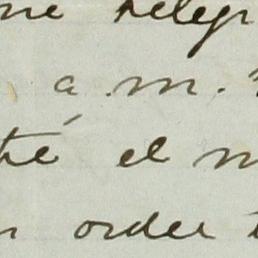 me telegr
a. m.
tré el m
n order t